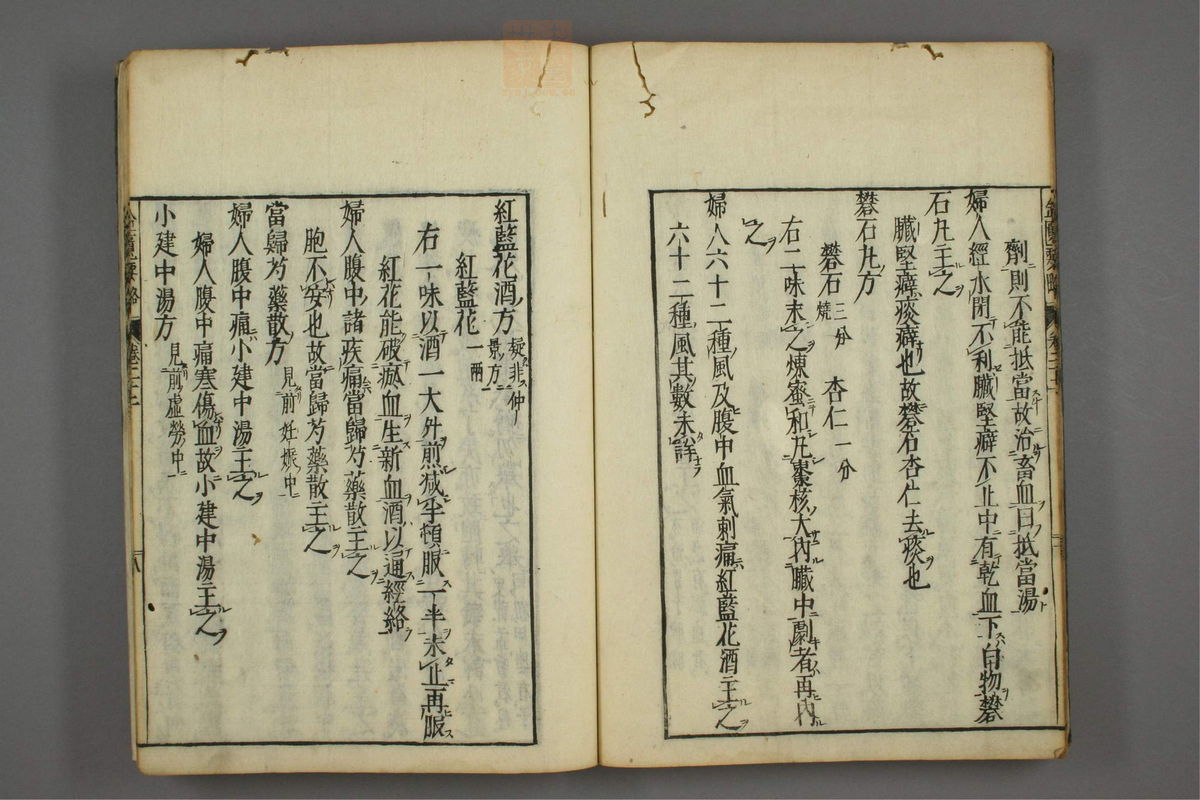 劑則不能抵當故治畜血曰抵當湯
婦人經水閉不利臟堅癖不止中有乾血下白物礬
石丸主之
臟堅癖痰癖也故礬石杏仁去痰也
礬石丸方
礬石三分燒 杏仁一分
右二味末之煉蜜和丸棗核大內臟中劇者再內
之
婦人六十二種風及腹中血氣刺痛紅藍花酒主之
六十二種風其數未詳
紅藍花酒方 疑非仲景方
紅藍花一兩
右一味以酒一大升煎减半頓服一半未止再服
紅花能破瘀血生新血酒以通經絡
婦人腹中諸疾痛當歸芍藥散主之
胞不安也故當歸芍藥散主之
當歸芍藥散方 見前妊娠中
婦人腹中痛小建中湯主之
婦人腹中痛寒傷血故小建中湯主之
小建中湯方 見前虛勞中
八